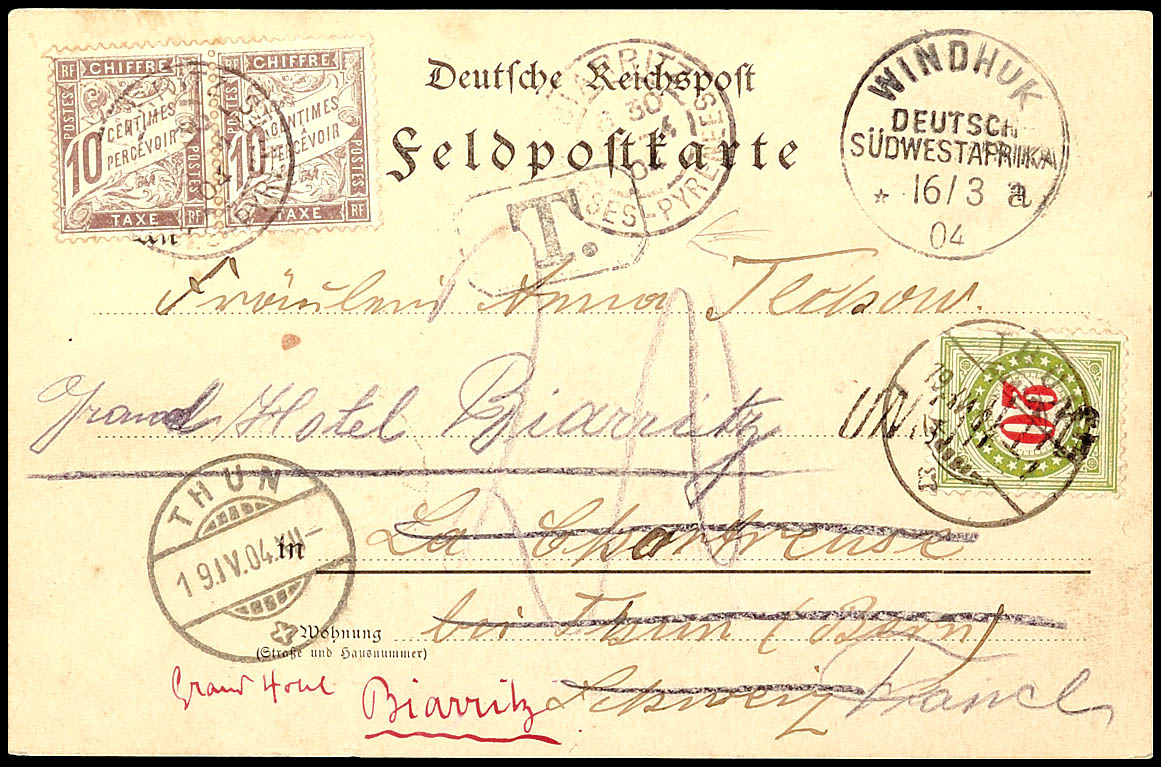 RF CHIFFRE RF CHIFFRE
POSTES 10 CENTIMES À PERCEVOIR POSTES
10 CENTIMES À PERCEVOIR POSTES
TAXE RF TAXE RF
Deutsche Reichspost
Feldpostkarte
BIARRITZ
BSES-PYRENEES
WINDHUK
DEUTSCH-
SÜDWESTAFRIKA
* 16/3 a
04
T.
An
Fräulein Anna
Grand Hotel Biarritz
20
THUN
19.IV.04.XII-
in La Chartreuse
Wohnung
(Straße und Hausnummer)
bei Thun (Bern)
Schweiz France
Grand Hotel
Biarritz